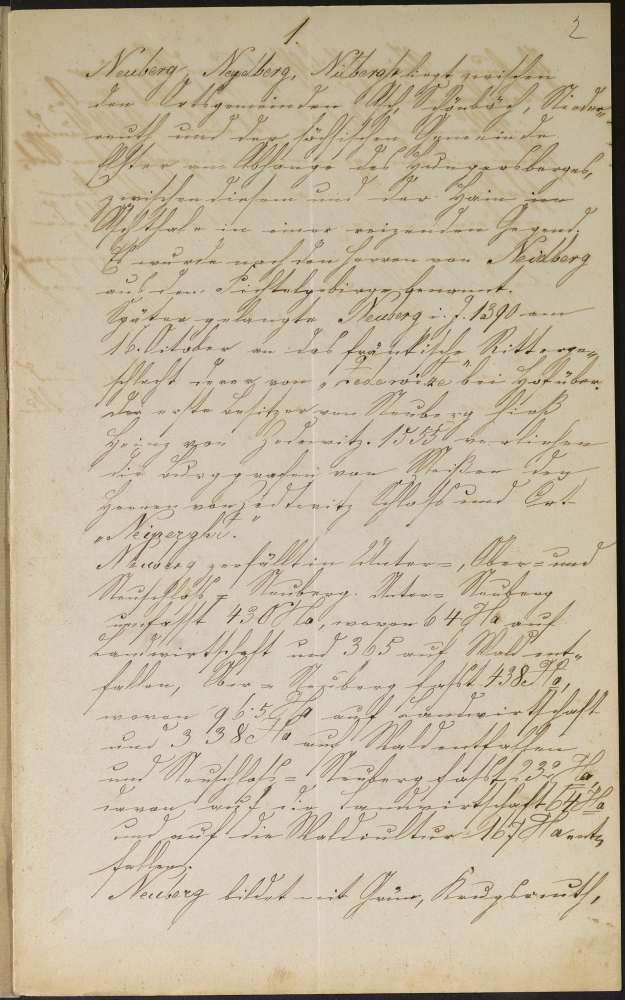 1.
2
Neuberg, Neydberg, Nüberg liegt zwischen
den Ortsgemeinden Asch, Schönbach, Nieder-
reuth und der sächsischen Gemeinde
Elster am Abhange des Hungersberges,
zwischen diesem und der Hain im
Aschthale in einer reizenden Gegend.
Es wurde nach den Herren von Neidberg
aus dem Fichtelgebirge genannt.
Später gelangte Neuberg i. J. 1390 am
16. October an das fränkische Ritterge-
schlecht derer von „Zedewitze“ bei Hof über.
Der erste Besitzer von Neuberg hieß
Heinz von Zedewitz. 1555 verliehen
die Burggrafen von Meißen den
Herren von Zedtwitz Schloß und Ort
„Neiperghe.“
Neuberg zerfällt in Unter-, Ober- und
Neuschloß-Neuberg. Unter-Neuberg
umfasst 430 Ha, wovon 64 Ha auf
Landwirtschaft und 365 auf Wald ent-
fallen, Ober-Neuberg fasst 438 Ha,
wovon 96.5 Ha auf Landwirtschaft
und 338 Ha auf Wald entfallen
und Neuschloß-Neuberg fasst 232 Ha,
davon auf die Landwirtschaft 64 Ha
und auf die Waldcultur 167 Ha ent-
fallen.
Neuberg bildet mit Grün, Krugsreuth,